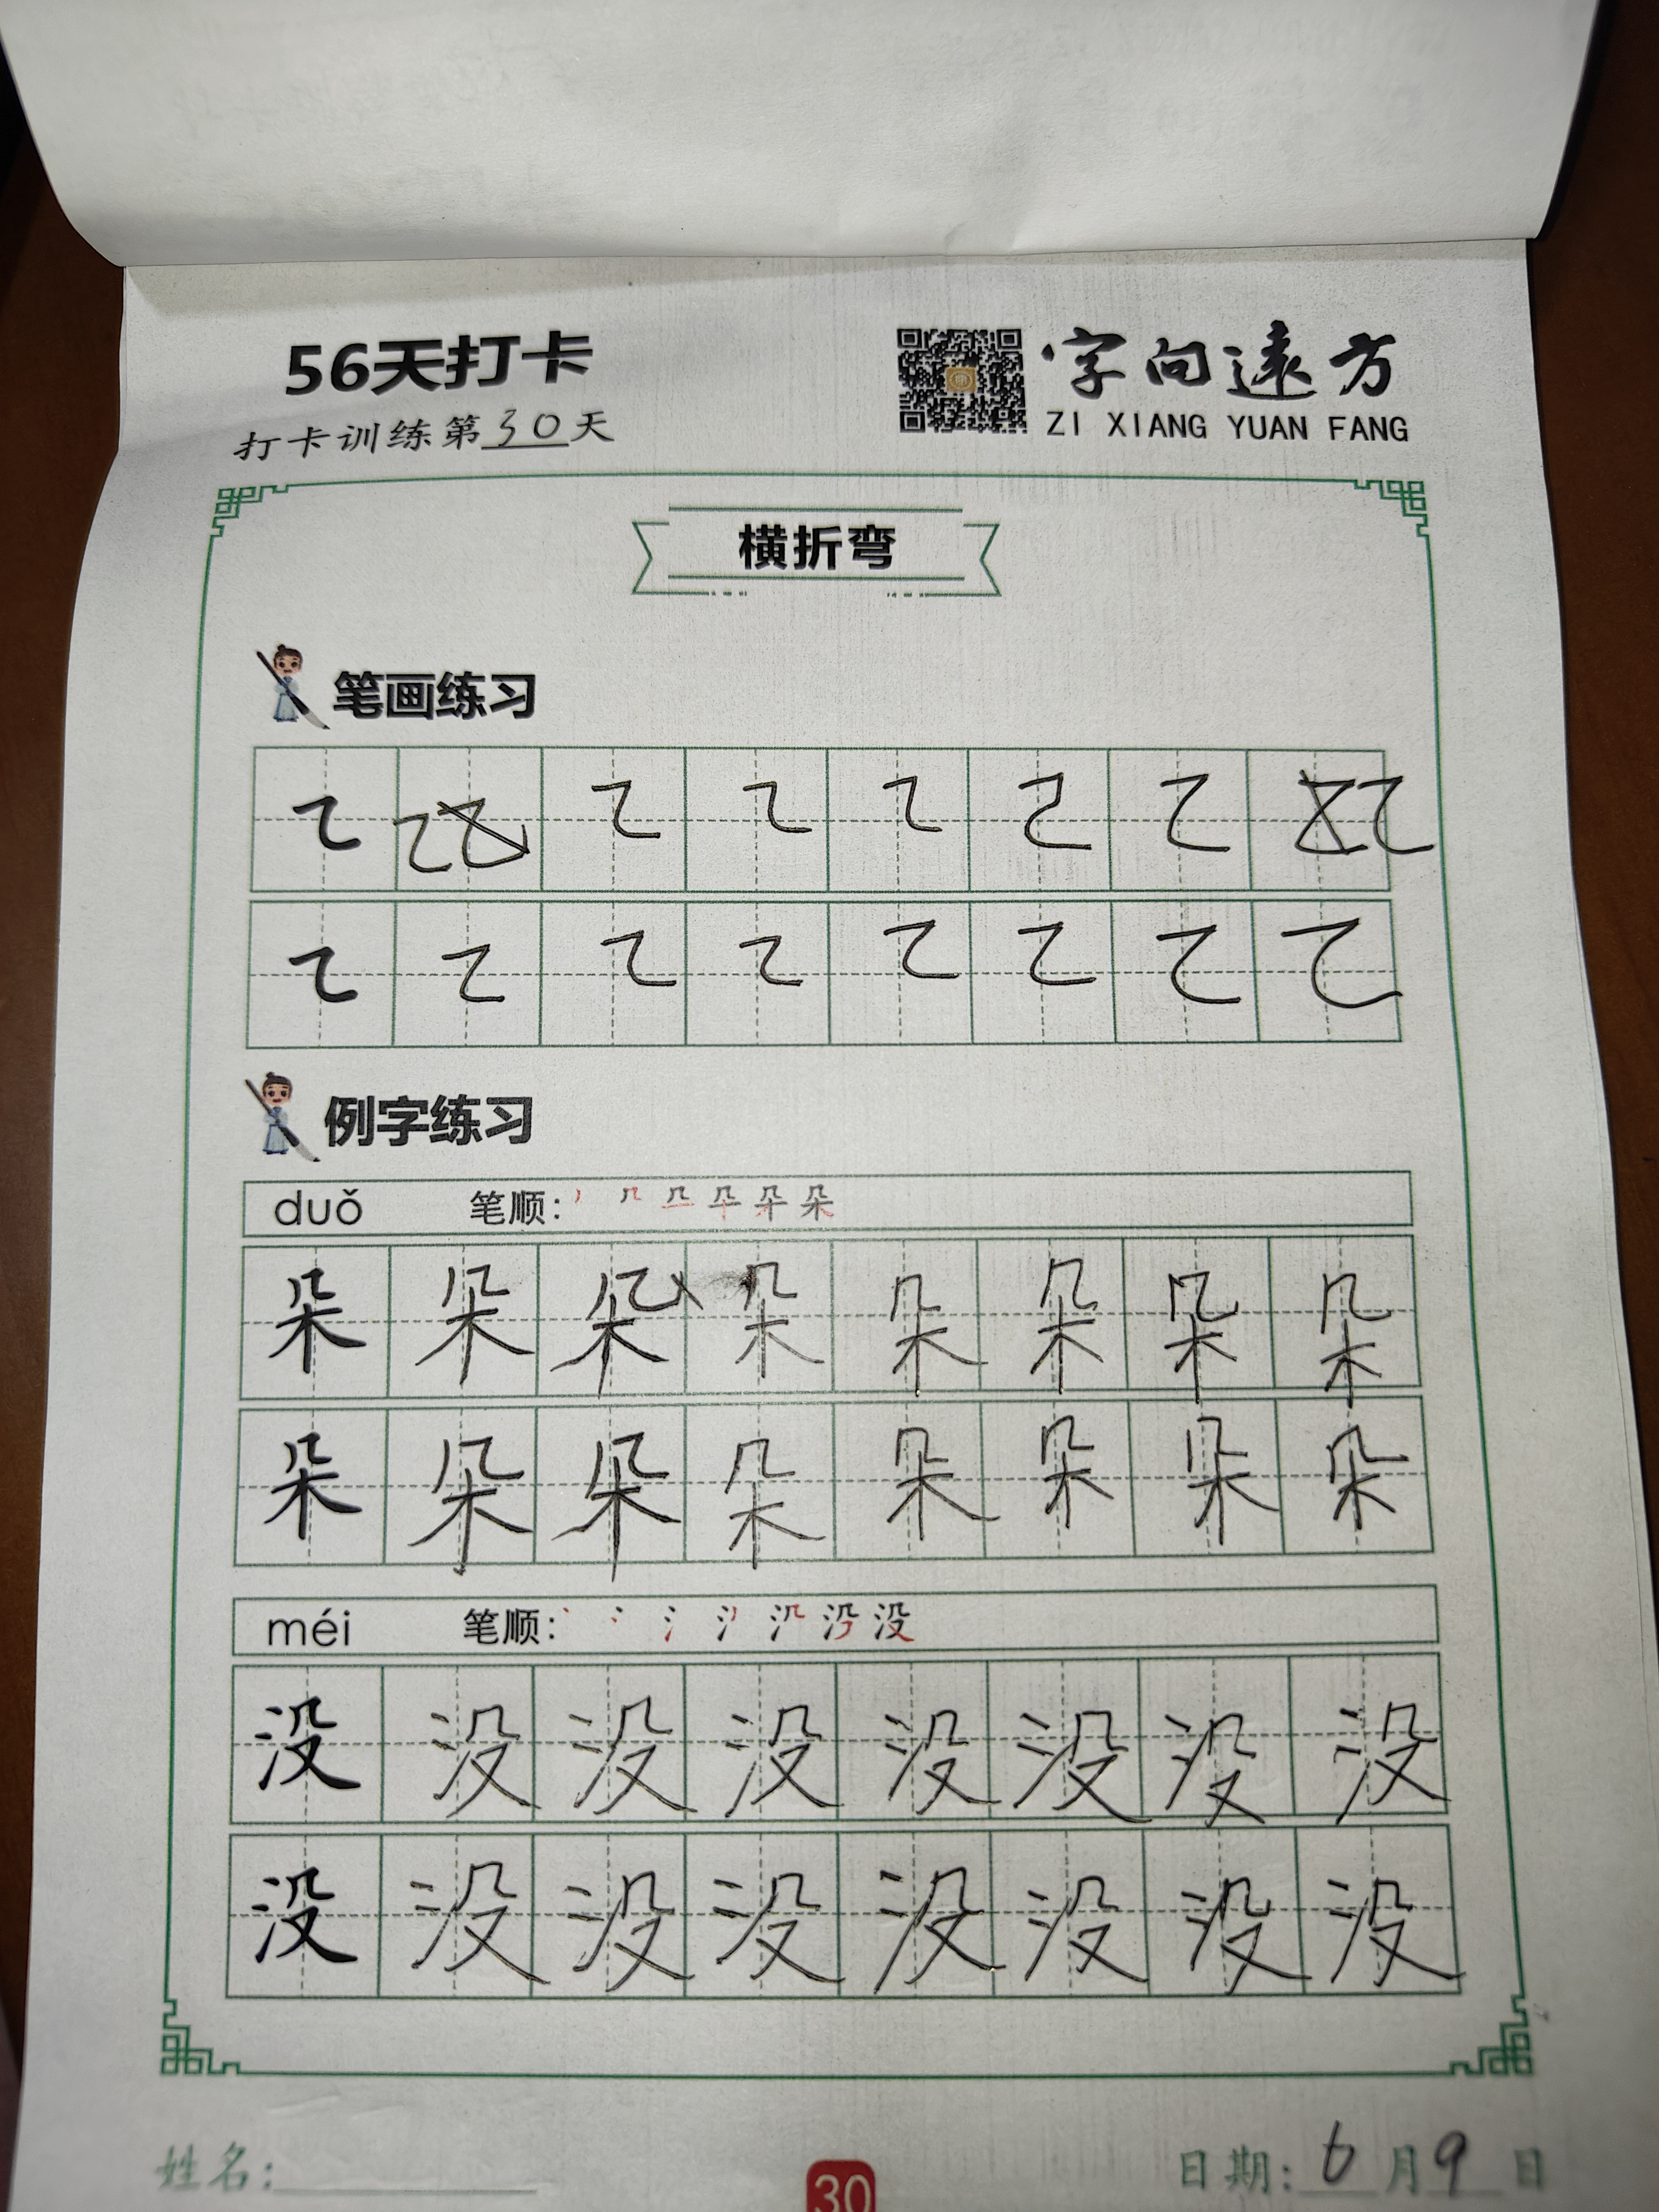 56天打卡
打卡训练第30天
字向遠方
ZI XIANG YUAN FANG
横折弯
笔画练习
例字练习
duǒ 笔顺:
朵 朵 朵 朵 朵 朵 朵 朵
朵 朵 朵 朵 朵 朵 朵 朵
méi 笔顺:
没 没 没 没 没 没 没 没
没 没 没 没 没 没 没 没
姓名:
30
日期: 6月9日